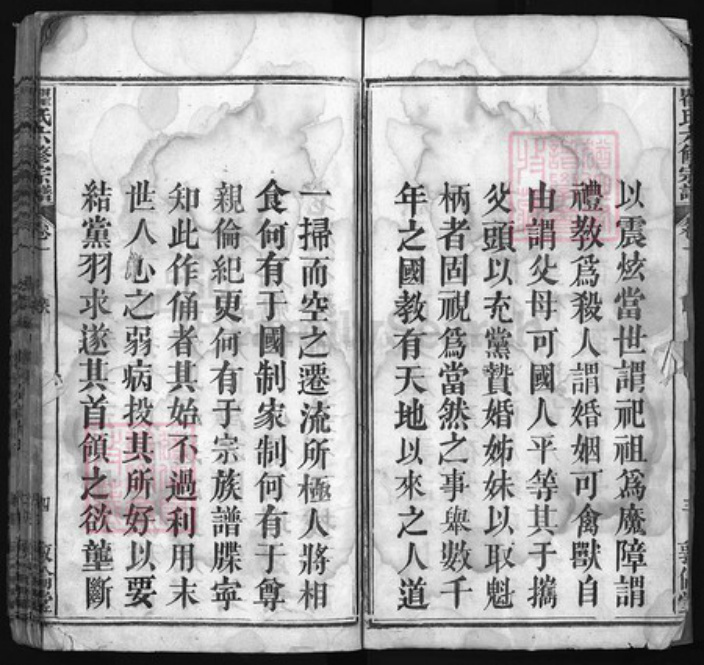 以震炫當世謂祀祖爲魔障謂
禮教爲殺人謂婚姻可禽獸自
由謂父母可國人平等其于攜
父頭以充黨贄婚姊妹以取魁
柄者固視爲當然之事舉數千
年之國教有天地以來之人道
一掃而空之遷流所極人將相
食何有于國制家制何有于尊
親倫紀更何有于宗族譜牒寧
知此作俑者其始不過利用末
世人心之弱病投其所好以要
結黨羽求遂其首領之欲壟斷
瞿氏六修宗譜
卷一
四
敦倫堂